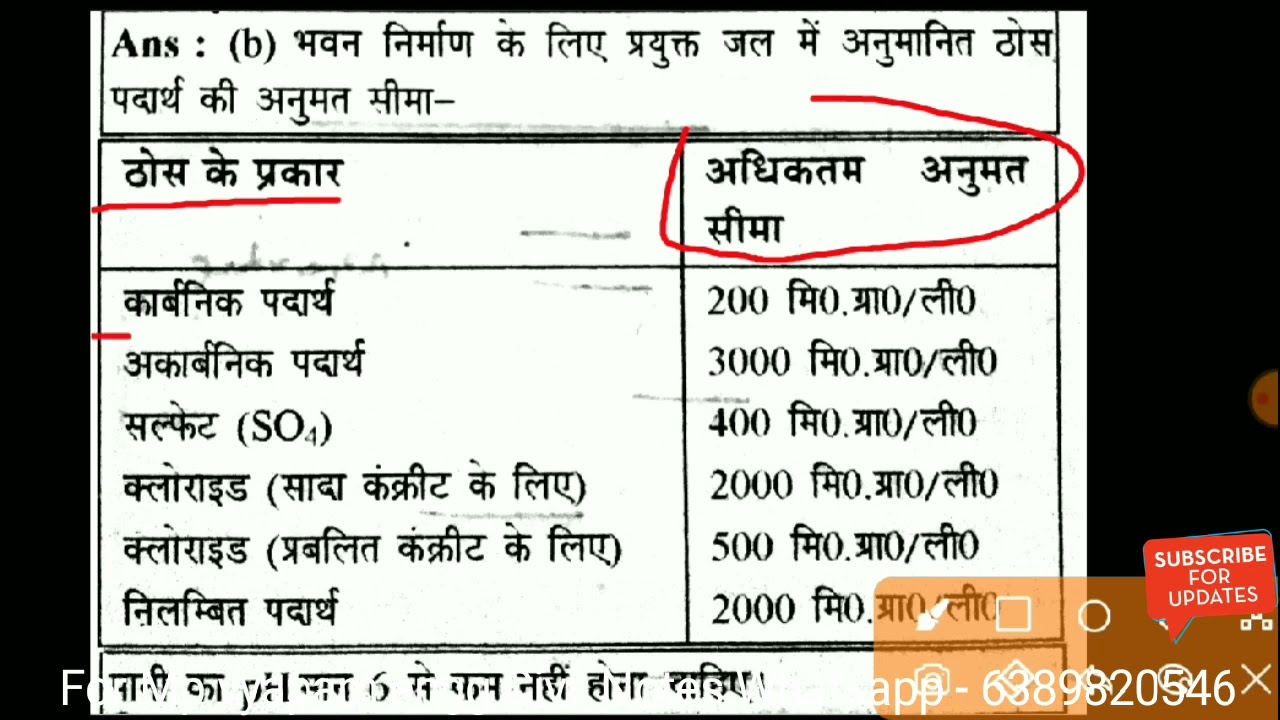 Ans : (b) भवन निर्माण के लिए प्रयुक्त जल में अनुमानित ठोस
पदार्थ की अनुमत सीमा–
ठोस के प्रकार
अधिकतम अनुमत
सीमा
कार्बनिक पदार्थ 200 मि0.ग्रा0/ली0
अकार्बनिक पदार्थ 3000 मि0.ग्रा0/ली0
सल्फेट (SO₄) 400 मि0.ग्रा0/ली0
क्लोराइड (सादा कंक्रीट के लिए) 2000 मि0.ग्रा0/ली0
क्लोराइड (प्रबलित कंक्रीट के लिए) 500 मि0.ग्रा0/ली0
निलम्बित पदार्थ 2000 मि0.ग्रा0/ली0
SUBSCRIBE
FOR
UPDATES
पानी का 6 से कम नहीं होना चाहिए
- 6389820546